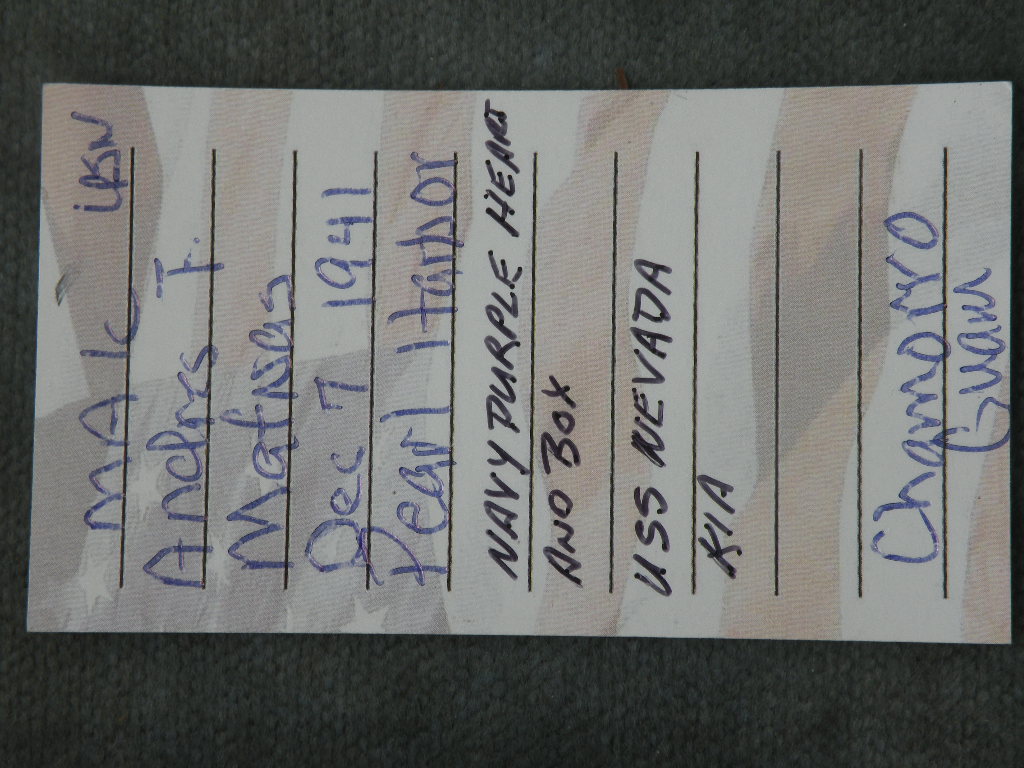 MAIC USN
Andres F.
Mafnas
Dec 7 1941
Pearl Harbor
NAVY PURPLE HEART
AND BOX
USS NEVADA
KIA
Chamorro
Guam